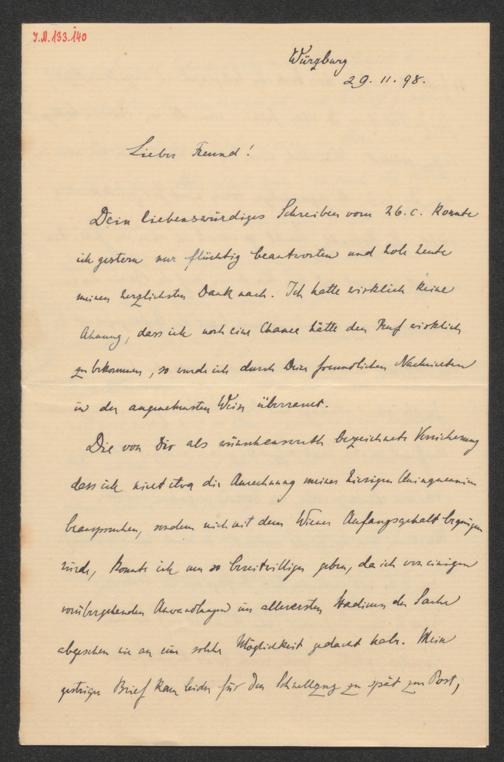 I.N. 133.140
Würzburg
29. 11. 98.
Lieber Freund!
Dein liebenswürdiges Schreiben vom 26. c. konnte
ich gestern nur flüchtig beantworten und hole heute
meinen herzlichsten Dank nach. Ich hatte wirklich keine
Ahnung, dass ich noch eine Chance hätte den Ruf wirklich
zu bekommen, so wurde ich durch Deine freundlichen Nachrichten
in der angenehmsten Weise überrascht.
Die von Dir als wünschenswerth bezeichnete Versicherung
dass ich nicht etwa die Anrechnung meiner hiesigen Quinquennien
beanspruchen, sondern mich mit dem Wiener Anfangsgehalt begnügen
würde, konnte ich um so bereitwilliger geben, da ich von einigen
vorübergehenden Anwandlungen im allerersten Stadium der Sache
abgesehen nie an eine solche Möglichkeit gedacht habe. Mein
gestriger Brief kam leider für den Schnellzug zu spät zur Post,